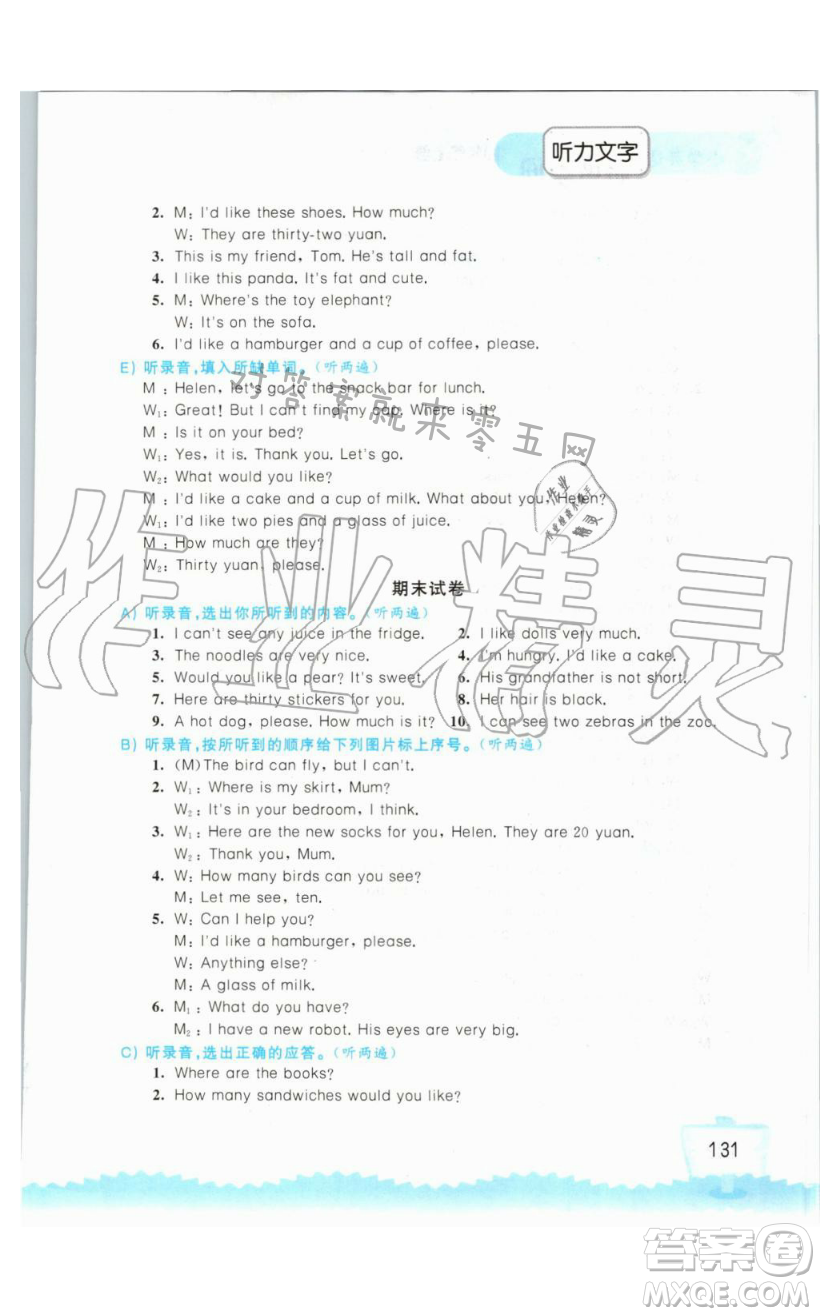 听力文字
2. M: I'd like these shoes. How much?
W: They are thirty-two yuan.
3. This is my friend, Tom. He's tall and fat.
4. I like this panda. It's fat and cute.
5. M: Where's the toy elephant?
W: It's on the sofa.
6. I'd like a hamburger and a cup of coffee, please.
E) 听录音,填入所缺单词。(听两遍)
M : Helen, let's go to the snack bar for lunch.
W₁: Great! But I can't find my cap. Where is it?
M : Is it on your bed?
W₁: Yes, it is. Thank you. Let's go.
W₂: What would you like?
M: I'd like a cake and a cup of milk. What about you, Helen?
W₁: I'd like two pies and a glass of juice.
M : How much are they?
W₂: Thirty yuan, please.
对答案就来零五网
作业
精灵
作业精灵
期末试卷
A) 听录音,选出你所听到的内容。(听两遍)
1. I can't see any juice in the fridge. 2. I like dolls very much.
3. The noodles are very nice. 4. I'm hungry. I'd like a cake.
5. Would you like a pear? It's sweet. 6. His grandfather is not short.
7. Here are thirty stickers for you. 8. Her hair is black.
9. A hot dog, please. How much is it? 10. I can see two zebras in the zoo.
B) 听录音,按所听到的顺序给下列图片标上序号。(听两遍)
1. (M)The bird can fly, but I can't.
2. W₁: Where is my skirt, Mum?
W₂: It's in your bedroom, I think.
3. W₁: Here are the new socks for you, Helen. They are 20 yuan.
W₂: Thank you, Mum.
4. W: How many birds can you see?
M: Let me see, ten.
5. W: Can I help you?
M: I'd like a hamburger, please.
W: Anything else?
M: A glass of milk.
6. M₁: What do you have?
M₂: I have a new robot. His eyes are very big.
C) 听录音,选出正确的应答。(听两遍)
1. Where are the books?
2. How many sandwiches would you like?
131
答案卷
MXQE.COM